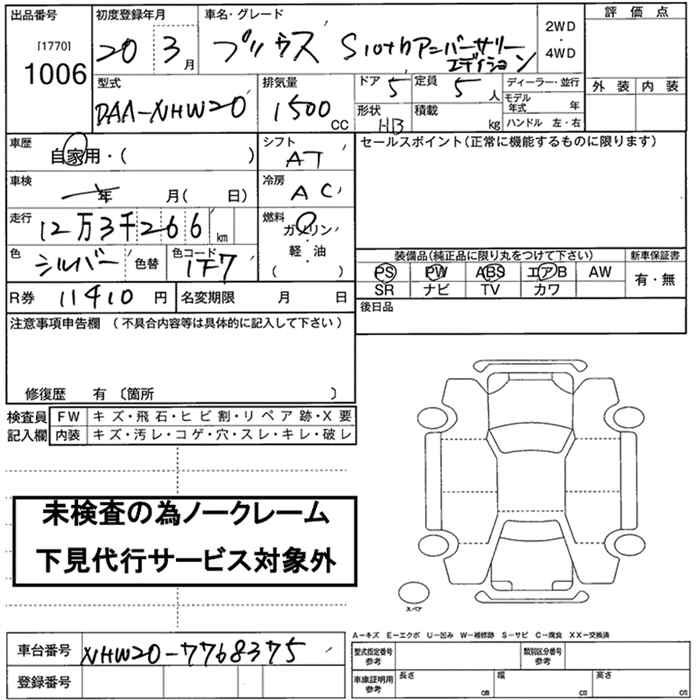 出品番号 初度登録年月 車名・グレード 評価点
[1770] 1006 20 3月 プリウス S 10thアニバーサリーエディション 2WD・4WD
外装 内装
型式 排気量 ドア 5 定員 5人 ディーラー・並行
DAA-NHW20 1500cc 形状 HB 積載 kg モデル年式 年
ハンドル 左・右
車歴 自家用・( ) シフト AT セールスポイント(正常に機能するものに限ります)
車検 年 月( 日) 冷房 AC
走行 12万3千266km 燃料 ガソリン
軽・油
( )
色 シルバー 色替 色コード 1F7
装備品(純正品に限り丸をつけて下さい) 新車保証書
PS PW ABS エアB AW 有・無
SR ナビ TV カワ
R券 11410円 名変期限 月 日 後日品
注意事項申告欄 (不具合内容等は具体的に記入して下さい)
修復歴 有 〔箇所 〕
検査員 FW キズ・飛石・ヒビ割・リペア跡・X要
記入欄 内装 キズ・汚レ・コゲ・穴・スレ・キレ・破レ
未検査の為ノークレーム
下見代行サービス対象外
スペア
A-キズ E-エクボ U-凹み W-補修跡 S-サビ C-腐食 XX-交換済
車台番号 NHW20-7768375 型式指定番号 参考 類別区分番号 参考
登録番号 車庫証明用 参考 長さ cm 幅 cm 高さ cm